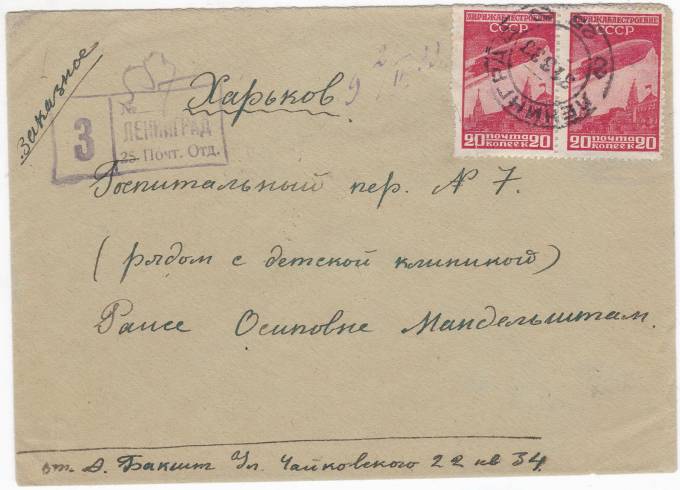 Заказное
З
№
ЛЕНИНГРАД
25 Почт. Отд.
ДИРИЖАБЛЕСТРОЕНИЕ
СССР
ПОЧТА
20 КОПЕЕК 20
ДИРИЖАБЛЕСТРОЕНИЕ
СССР
ПОЧТА
20 КОПЕЕК 20
ЛЕНИНГРАД
Харьков
Госпитальный пер. N 7.
(рядом с детской клиникой)
Раисе Осиповне Мандельштам.
от. А. Бакшт Ул. Чайковского 22 кв 34